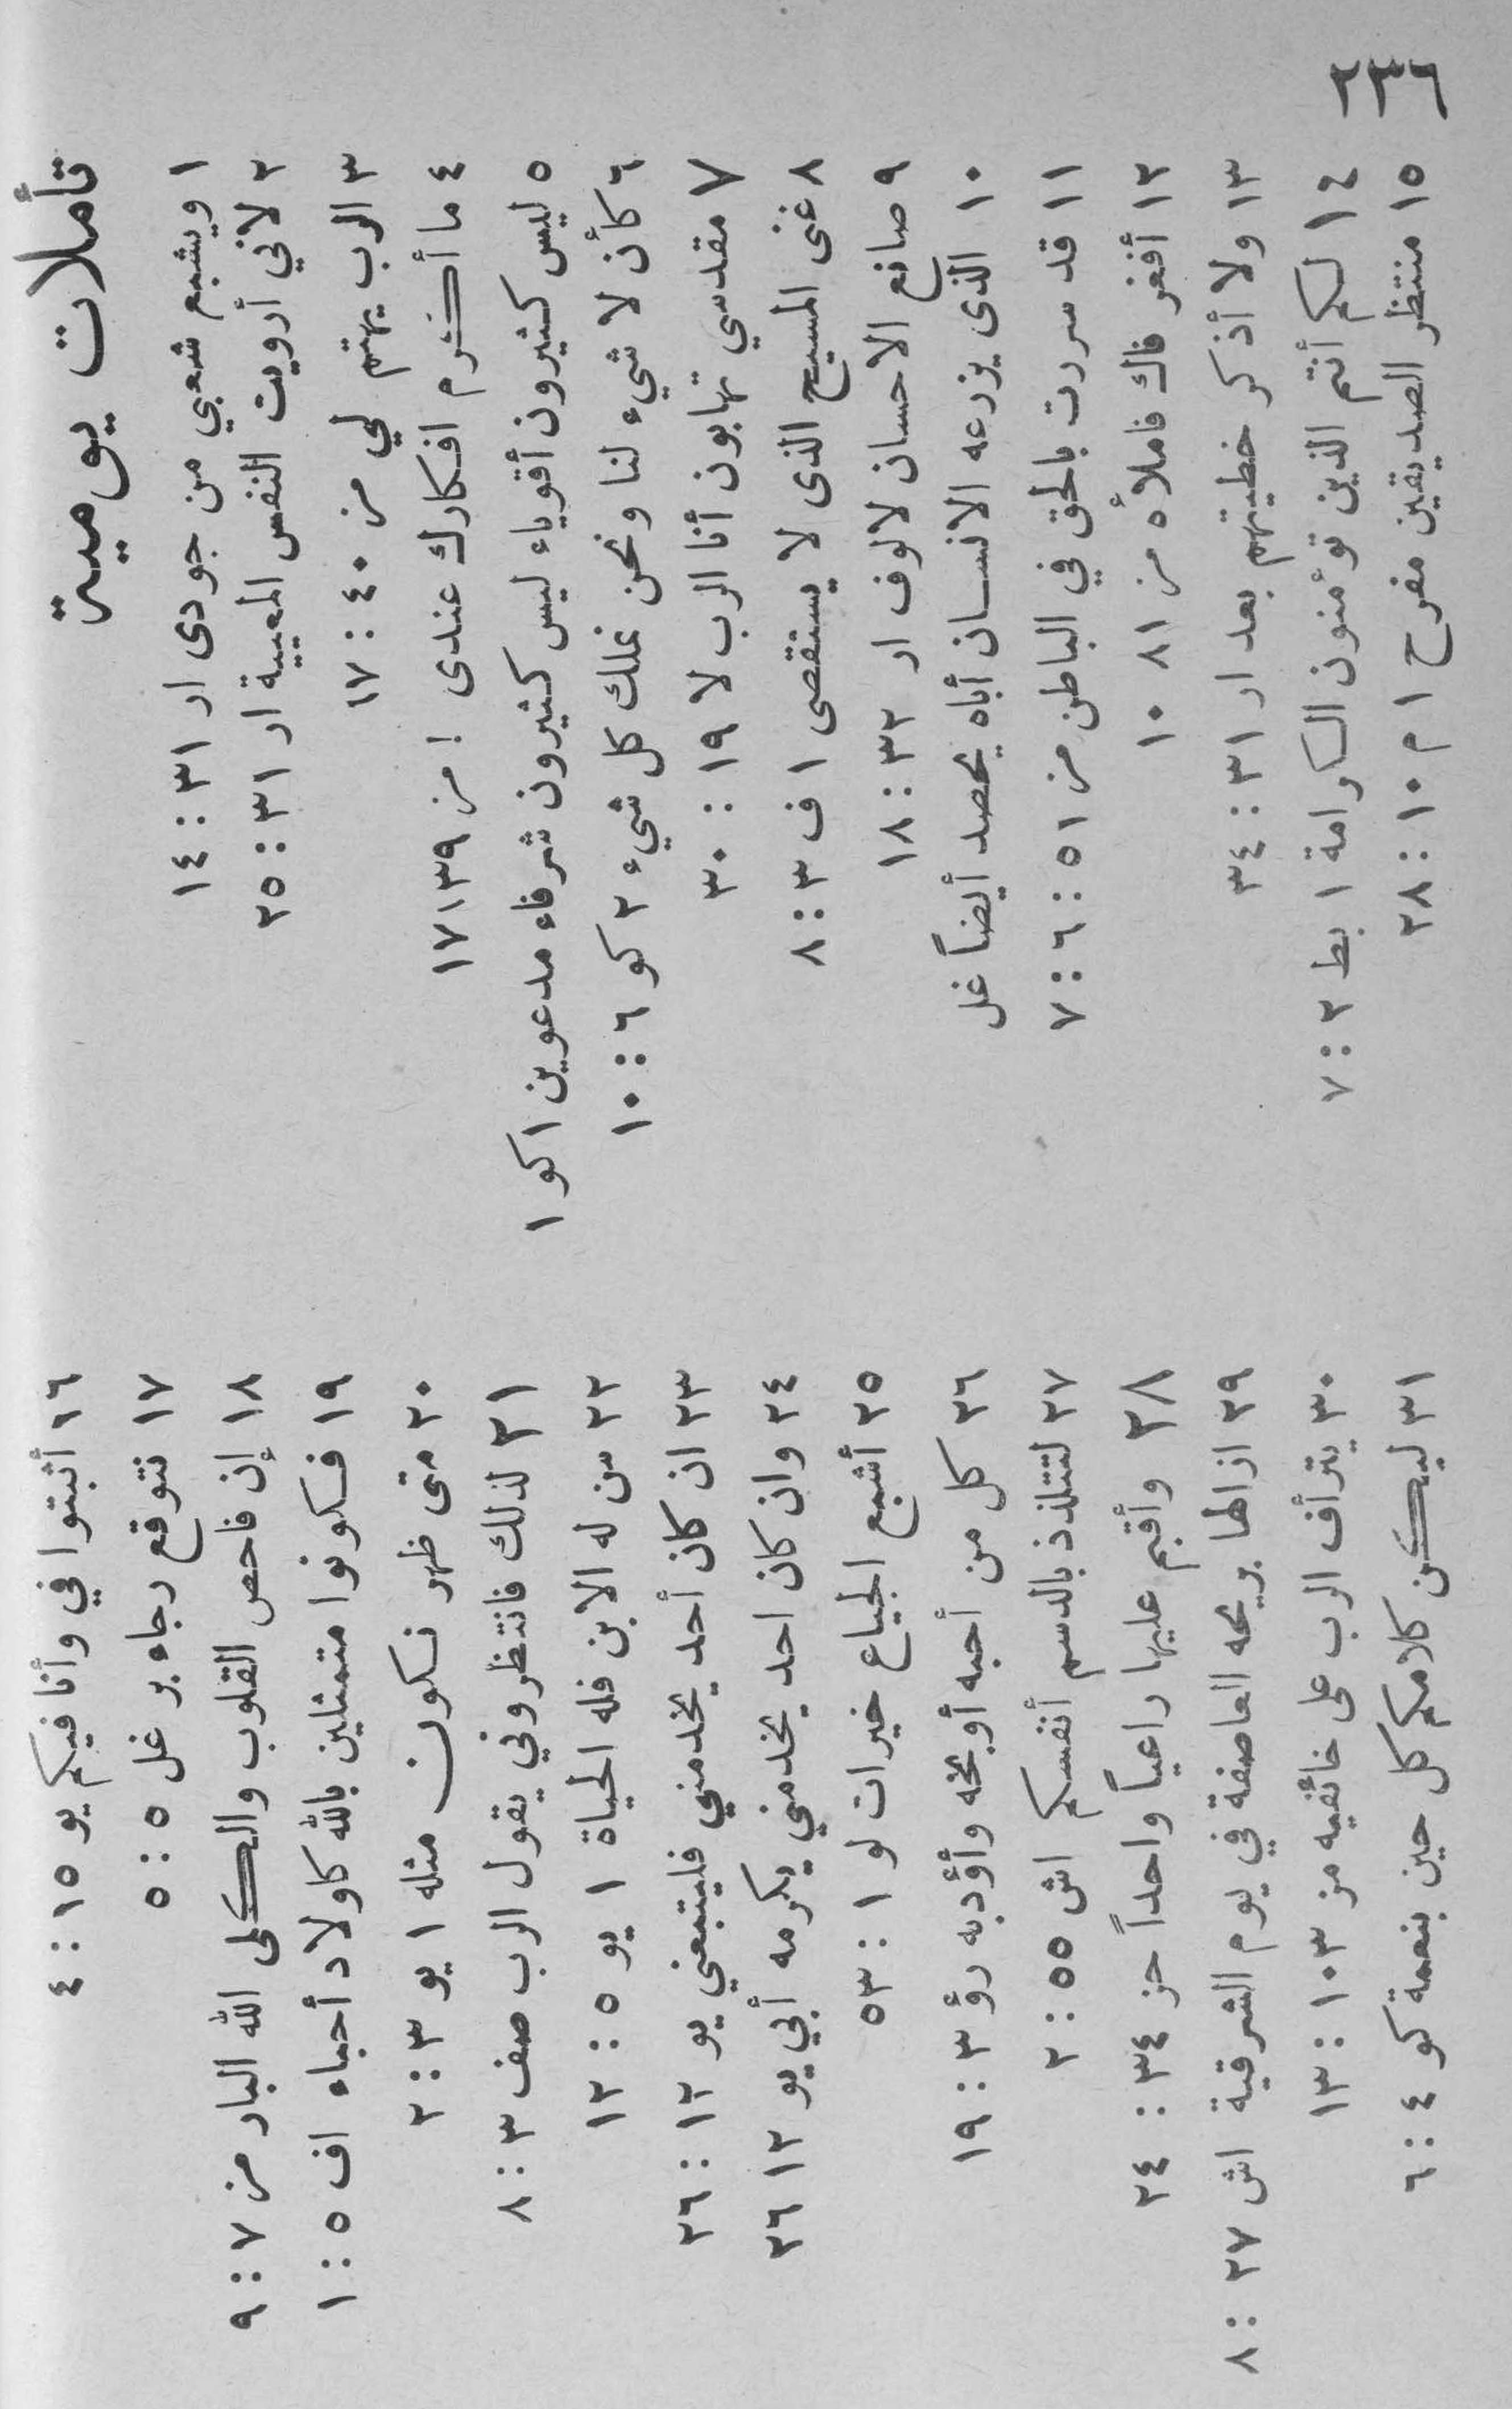 ٢٣٦
تأملات يومية
١ ويشبع شعبي من جودى ار ٣١ : ١٤
٢ لاني أرويت النفس المعيية ار ٣١ : ٢٥
٣ الرب يهتم لي مز ٤٠ : ١٧
٤ ما أكثرم افكارك عندى ! مز ١٣٩ ١٧
٥ ليس كثيرون أقوياء ليس كثيرون شرفاء مدعوين ١ كو ١
٦ كأن لا شيء لنا ونحن نملك كل شيء ٢ كو ٦ : ١٠
٧ مقدسي تهابون أنا الرب لا ١٩ : ٣٠
٨ غنى المسيح الذى لا يستقصى ١ ف ٣ : ٨
٩ صانع الاحسان لالوف ار ٣٢ : ١٨
١٠ الذى يزرعه الانسان أباه يحصد أيضاً غل
١١ قد سررت بالحق في الباطن مز ٥١ : ٦ : ٧
١٢ أفغر فاك فاملأه مز ٨١ ١٠
١٣ ولا أذكر خطيتهم بعد ار ٣١ : ٣٤
١٤ لكم أنتم الذين تؤمنون الكرامة ١ بط ٢ : ٧
١٥ منتظر الصديقين مفرح ١ م ١٠ : ٢٨
١٦ أثبتوا في وأنا فيكم يو ١٥ : ٤
١٧ نتوقع رجاء بر غل ٥ : ٥
١٨ إن فاحص القلوب والكلى الله البار مز ٧ : ٩
١٩ فكونوا متمثلين بالله كاولاد أحباء اف ٥ : ١
٢٠ متى ظهر نكون مثله ١ يو ٣ : ٢
٢١ لذلك فانتظروني يقول الرب صف ٣ : ٨
٢٢ من له الابن فله الحياة ١ يو ٥ : ١٢
٢٣ ان كان أحد يخدمني فليتبعني يو ١٢ : ٢٦
٢٤ وان كان احد يخدمني يكرمه أبي يو ١٢ ٢٦
٢٥ أشبع الجياع خيرات لو ١ : ٥٣
٢٦ كل من أحبه أوبخه وأؤدبه رؤ ٣ : ١٩
٢٧ لتتلذذ بالدسم أنفسكم اش ٥٥ : ٢
٢٨ وأقيم عليها راعياً واحداً حز ٣٤ : ٢٤
٢٩ ازالها بريحه العاصفة في يوم الشرقية اش ٢٧ : ٨
٣٠ يترأف الرب على خائفيه مز ١٠٣ : ١٣
٣١ ليكن كلامكم كل حين بنعمة كو ٤ : ٦